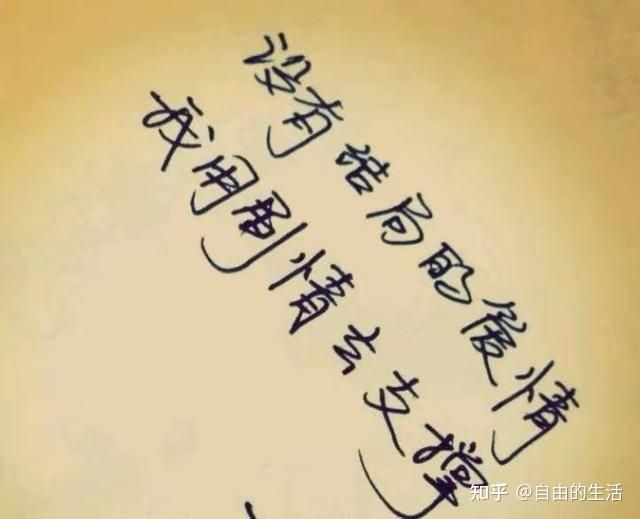 没有结局的爱情
我用剧情去支撑
知乎 @自由的生活